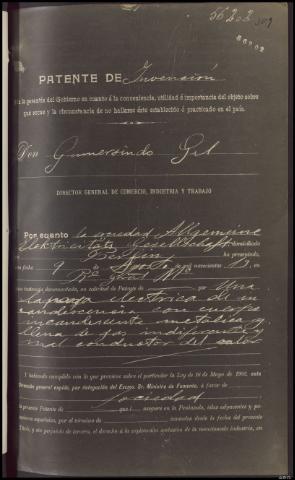 56202
PATENTE DE Invención
la garantía del Gobierno en cuanto á la conveniencia, utilidad é importancia del objeto sobre
que recae y la circunstancia de no hallarse éste establecido ó practicado en el país.
Don Gumersindo Gil
DIRECTOR GENERAL DE COMERCIO, INDUSTRIA Y TRABAJO
Por cuanto la sociedad Allgemeine
Elektricitats Gesellschaft domiciliado
en Berlín ha presentado,
fecha 9 de Agosto de mil novecientos 13, en
una
lámpara eléctrica de in
candescencia con cuerpo
incandescente metálico y
llena de gas indiferente y
mal conductor del calor
Y habiendo cumplido con lo que previene sobre el particular la Ley de 16 de Mayo de 1902, este
Director general expide, por delegación del Excmo. Sr. Ministro de Fomento, á favor de
Sociedad
la presente Patente de que asegura en la Península, islas adyacentes y po
sesiones españolas, por el término de contados desde la fecha del presente
Título, y sin perjuicio de tercero, el derecho á la explotación exclusiva de la mencionada industria, en